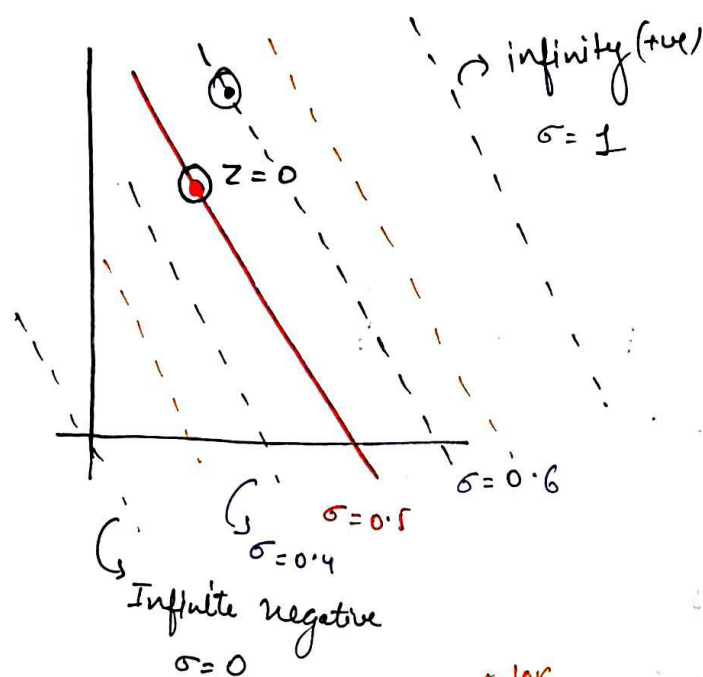 infinity (+ve)
σ = 1
Z = 0
σ = 0.6
σ = 0.5
σ = 0.4
Infinite negative
σ = 0